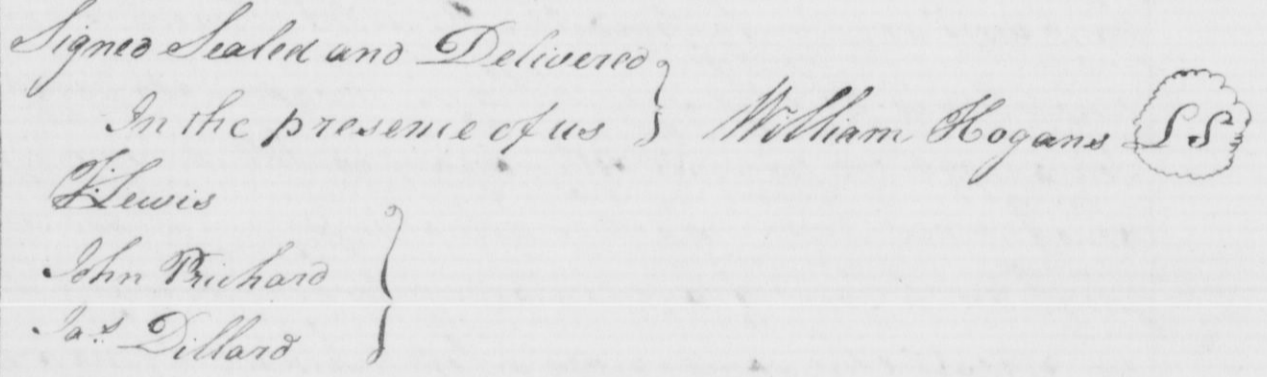 Signed Sealed and Delivered
In the presence of us } William Hogans L S
Lewis
John Prichard
Jas. Dillard